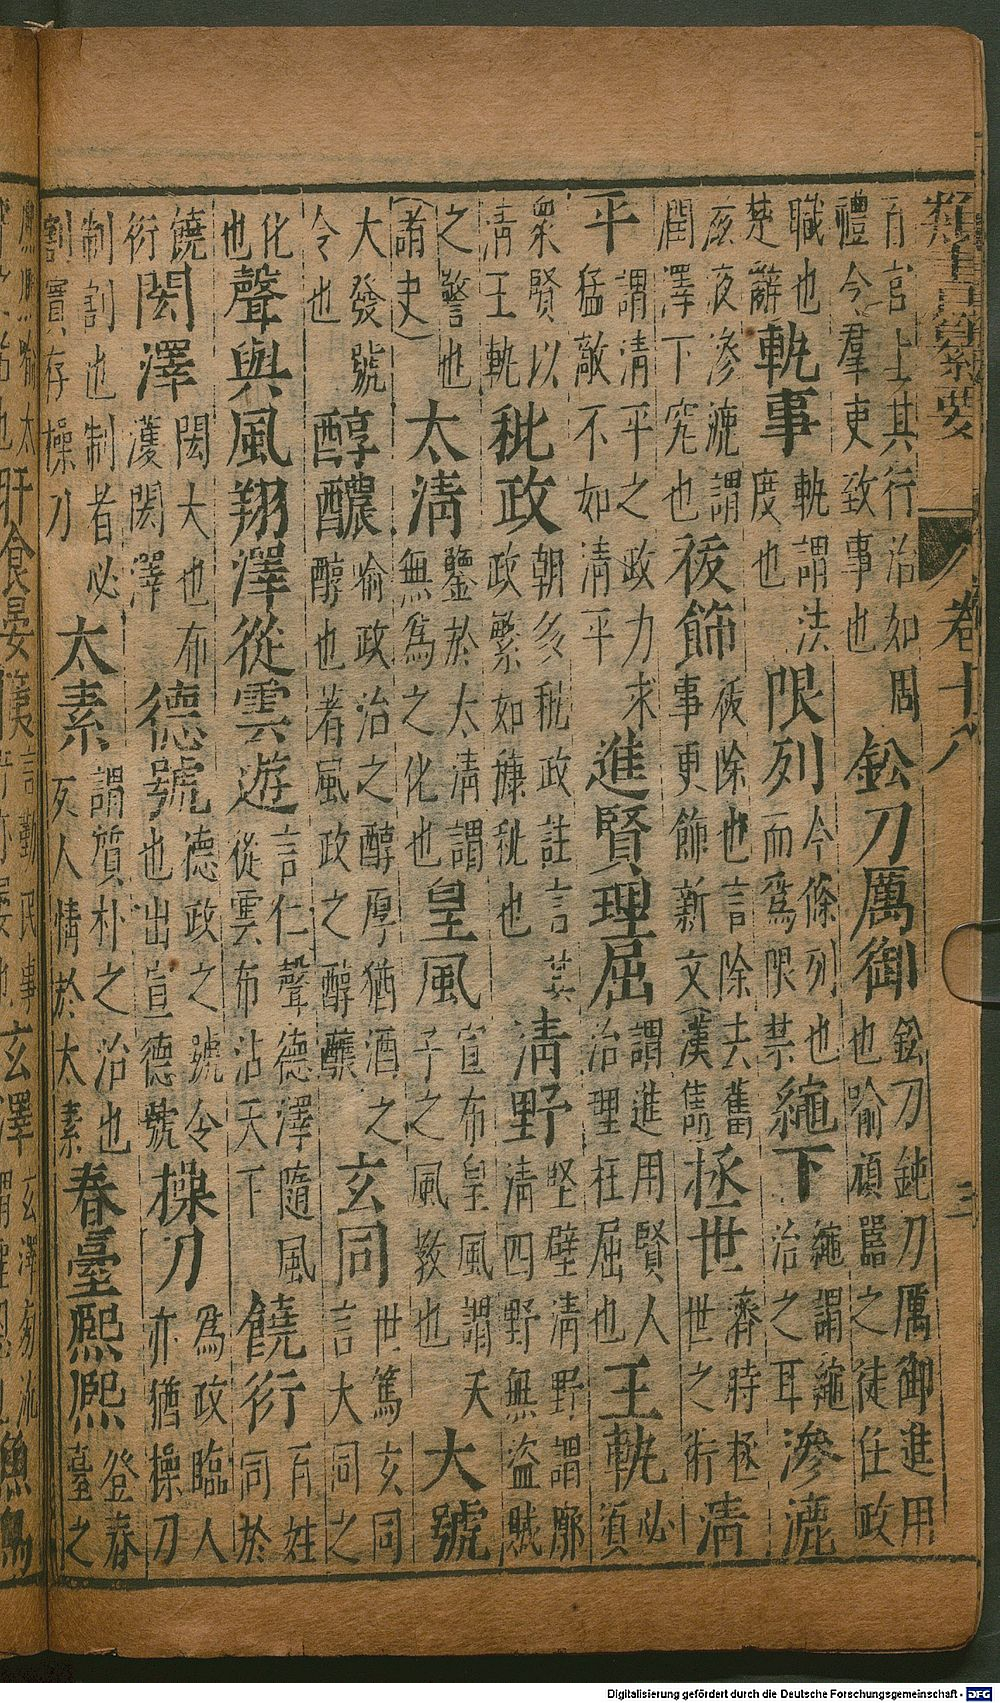 類書纂要 卷十八 三
百官上其行治如周
禮令羣吏致事也
鈆刀厲御
鈆刀鈍刀厲御進用
也喻頑嚚之徒任政
職也
楚辭
軌事
軌謂法
度也
限列
今條列也
而爲限禁
繩下
繩謂繩
治之耳
滲漉
夜滲漉謂
潤澤下究也
祓飾
祓除也言除去舊
事更飾新文漢雋
拯世
濟時拯
世之術
清
平
謂清平之政力求
猛敵不如清平
進賢理屈
謂進用賢人
治理枉屈也
王軌
必
須
衆賢以
清王軌
秕政
朝多秕政註言莫
政繁如糠秕也
清野
堅壁清野謂廓
清四野無盜賊
之警也
(諸史)
太清
鑒於太清謂
無爲之化也
皇風
宣布皇風謂天
子之風教也
大號
大發號
令也
醇醲
喻政治之醇厚猶酒之
醇也著風政之醇醲
玄同
世篤玄同
言大同之
化
也
聲與風翔澤從雲遊
言仁聲德澤隨風
從雲布沾天下
饒衍
百姓
同於
饒
衍
閎澤
閎大也布
濩閎澤
德號
德政之號令
也出宣德號
操刀
爲政臨人
亦猶操刀
制割也制者必
割實存操刀
太素
謂質朴之治也
反人情於太素
春臺熙熙
登春
臺之
玄澤
Digitalisierung gefördert durch die Deutsche Forschungsgemeinschaft - DFG